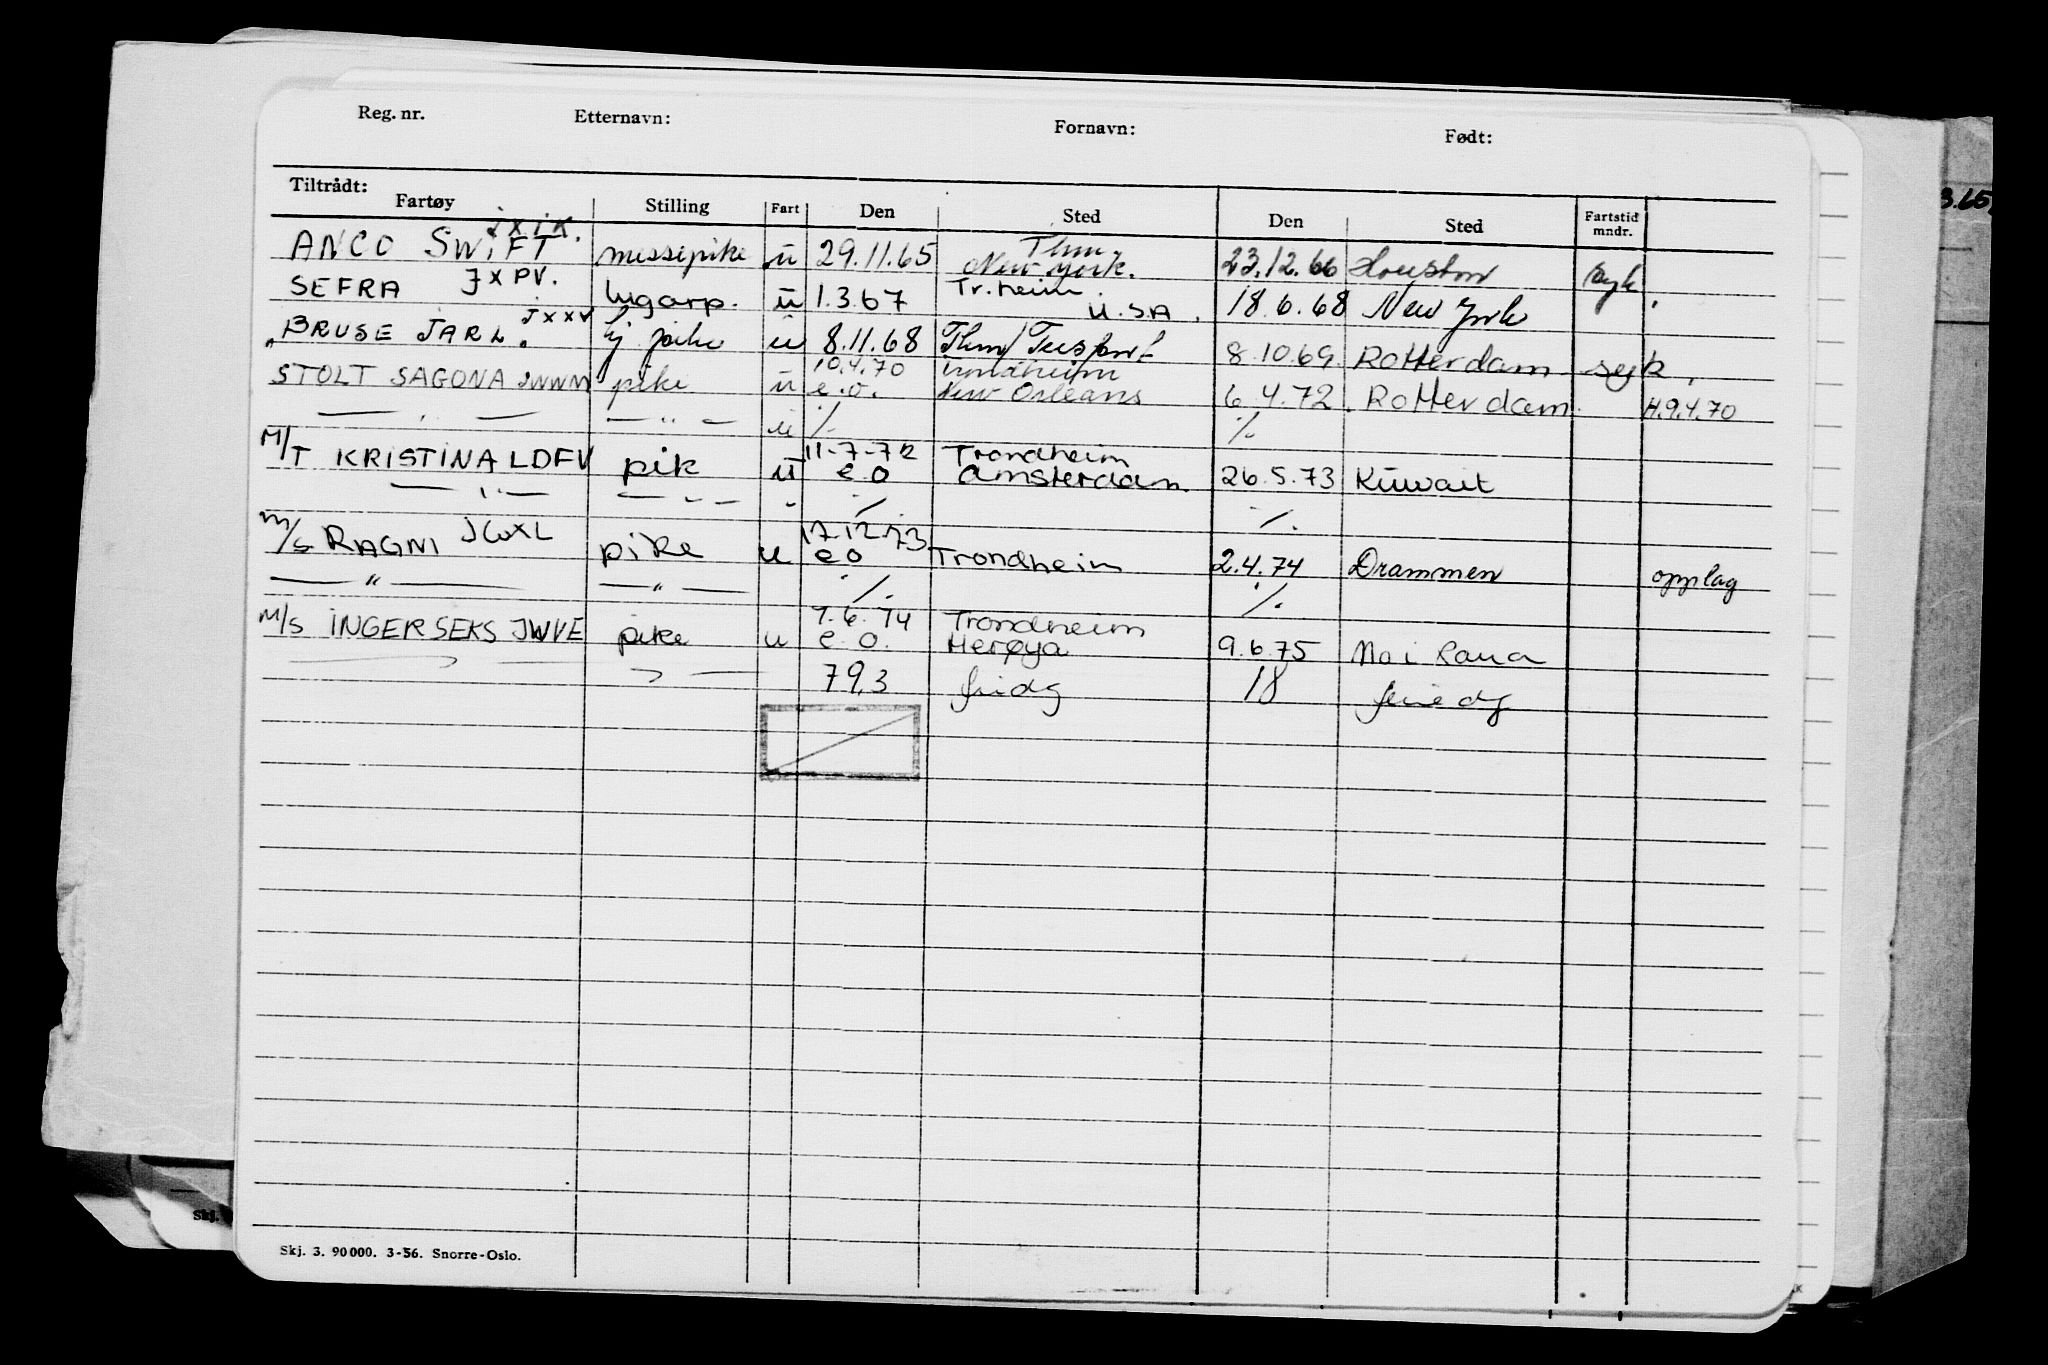 Reg. nr. Etternavn: Fornavn: Født:
Tiltrådt:
Fartøy Stilling Fart Den Sted Den Sted Fartstid mndr.
ANCO SWIFT JXIK. messepike u 29.11.65 Thm New York. 23.12.66 Houston syk
SEFRA JXPV. lugarp. u 1.3.67 Tr.heim U.S.A. 18.6.68 New York
"BRUSE JARL". JXXV pike u 8.11.68 Thm/ 8.10.69. Rotterdam syk.
STOLT SAGONA JWWM pike u 10.4.70 e.o. Trondheim New Orleans 6.4.72. Rotterdam. H.9.4.70
— " — — " — u ./. ./.
M/T KRISTINA LDFV pik u 11-7-72 e o Trondheim Amsterdam 26.5.73 Kuwait
— " — — " — " ./. ./.
M/S RAGNI JWXL pike u 17.12.73 e o Trondheim 2.4.74 Drammen opplag
— " — — " — ./. ./.
M/S INGERSEKS JWVE pike u 7.6.74 e.o. Trondheim Herøya 9.6.75 Mo i Rana
79,3 18
Skj. 3. 90000. 3-56. Snorre-Oslo.
Skj.
3.65